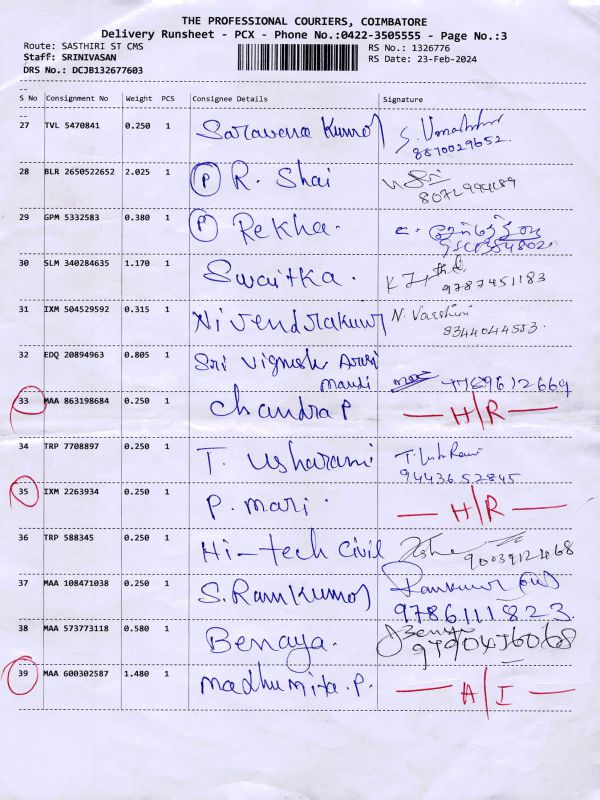 THE PROFESSIONAL COURIERS, COIMBATORE
Delivery Runsheet - PCX - Phone No.:0422-3505555 - Page No.:3
Route: SASTHIRI ST CMS RS No.: 1326776
Staff: SRINIVASAN RS Date: 23-Feb-2024
DRS No.: DCJB132677603
S No Consignment No Weight PCS Consignee Details Signature
27 TVL 5470841 0.250 1 Saravana Kumar S.
8870029652.
28 BLR 2650522652 2.025 1 P R. Shai
29 GPM 5332583 0.380 1 P Rekha.
30 SLM 340284635 1.170 1 Swaitka.
9787451183
31 IXM 504529592 0.315 1 Nivendrakumar N. Varshini
8344044553.
32 EDQ 20894963 0.805 1 Sri Vignesh
Mandi
33 MAA 863198684 0.250 1 Chandra P — H/R —
34 TRP 7708897 0.250 1 T. Usharani
9443652845
35 IXM 2263934 0.250 1 P. mari. — H/R —
36 TRP 588345 0.250 1 Hi-tech Civil
37 MAA 108471038 0.250 1 S.Ramkumar
9786111823
38 MAA 573773118 0.580 1 Benaya.
39 MAA 600302587 1.480 1 Madhumita.P. — A/I —